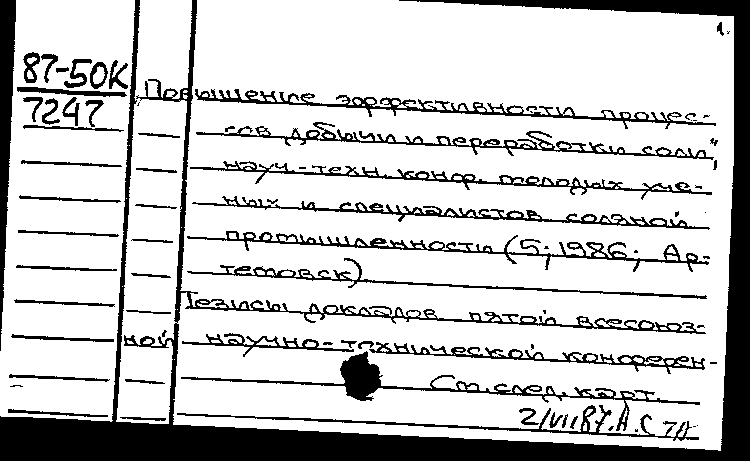 1.
87-50К
7247
Повышение эффективности процес-
сов добычи и переработки соли",
науч.-техн. конф. молодых уче-
ных и специалистов соляной
промышленности (5; 1986; Ар-
темовск)
Тезисы докладов пятой всесоюз-
ной научно-технической конферен-
См. след. карт.
2/VII87. А.С